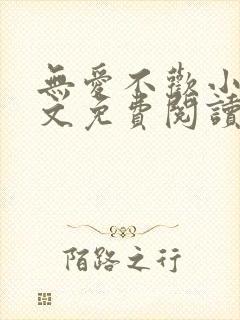 無愛不歡小
文免費閱讀
陌路之行